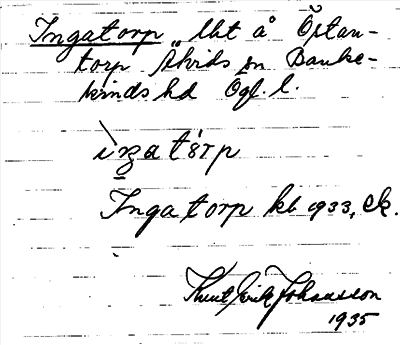 Ingatorp lht å Östan-
torp Skvids sn Banke-
kinds hd Ögl. l.
Ingatorp kb 1933, ek.
Knut Erik Johansson
1935